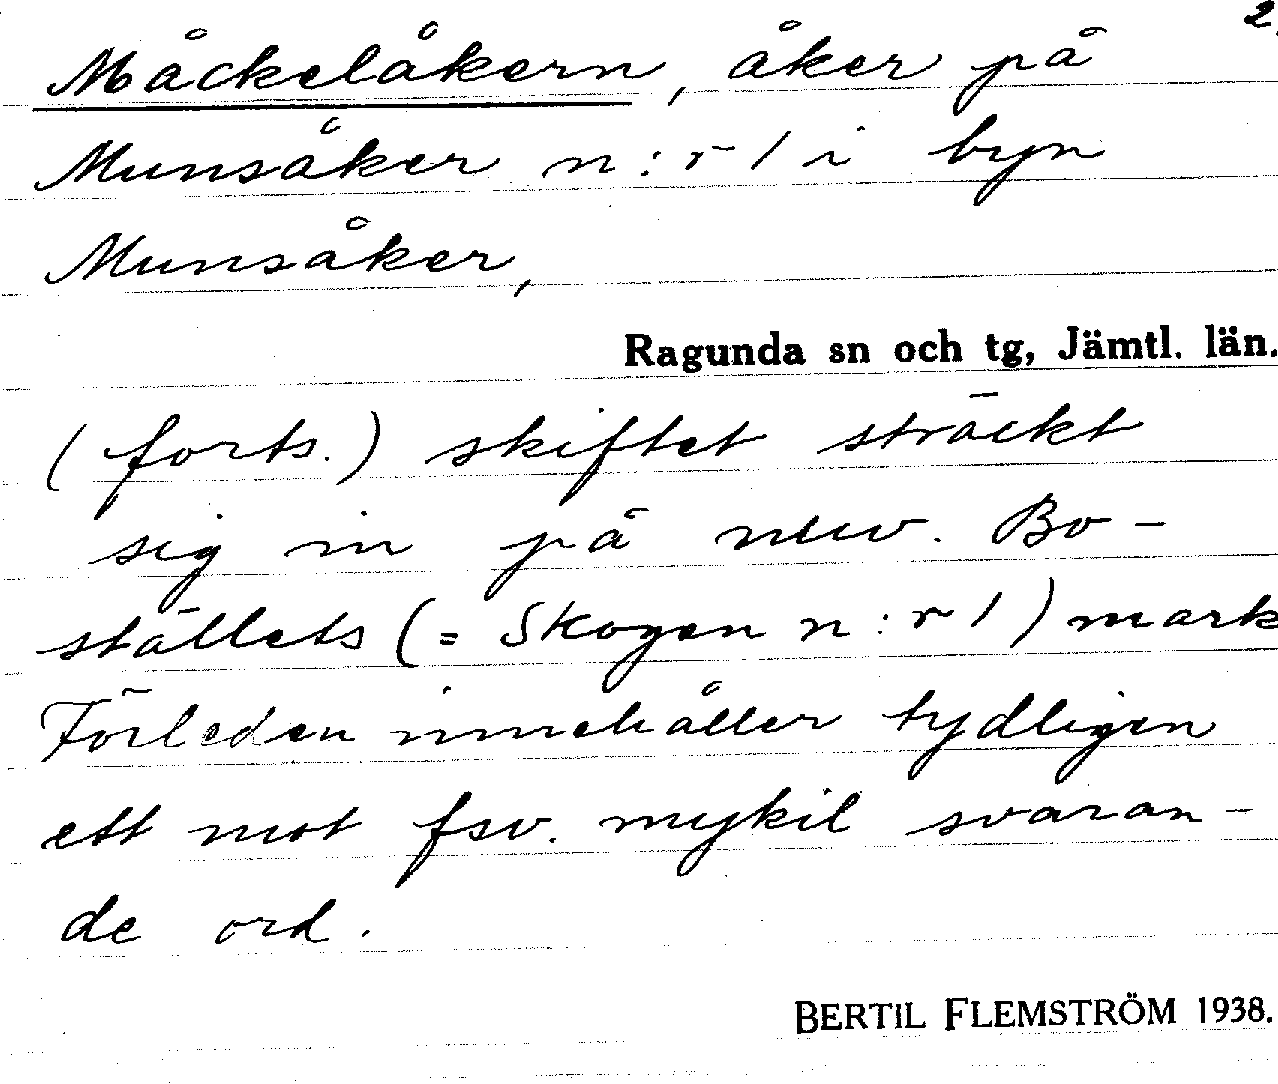 2.
Måckelåkern, åker på
Munsåker n:r 1 i byn
Munsåker,
Ragunda sn och tg, Jämtl. län.
(forts.) skiftet sträckt
sig in på nuv. Bo-
ställets (= Skogen n:r 1) mark
Förleden innehåller tydligen
ett mot fsv. mykil svaran-
de ord.
BERTIL FLEMSTRÖM 1938.